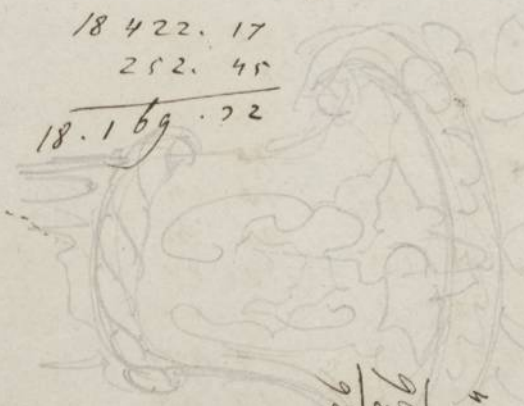 18 422. 17
252. 45
18.169.72